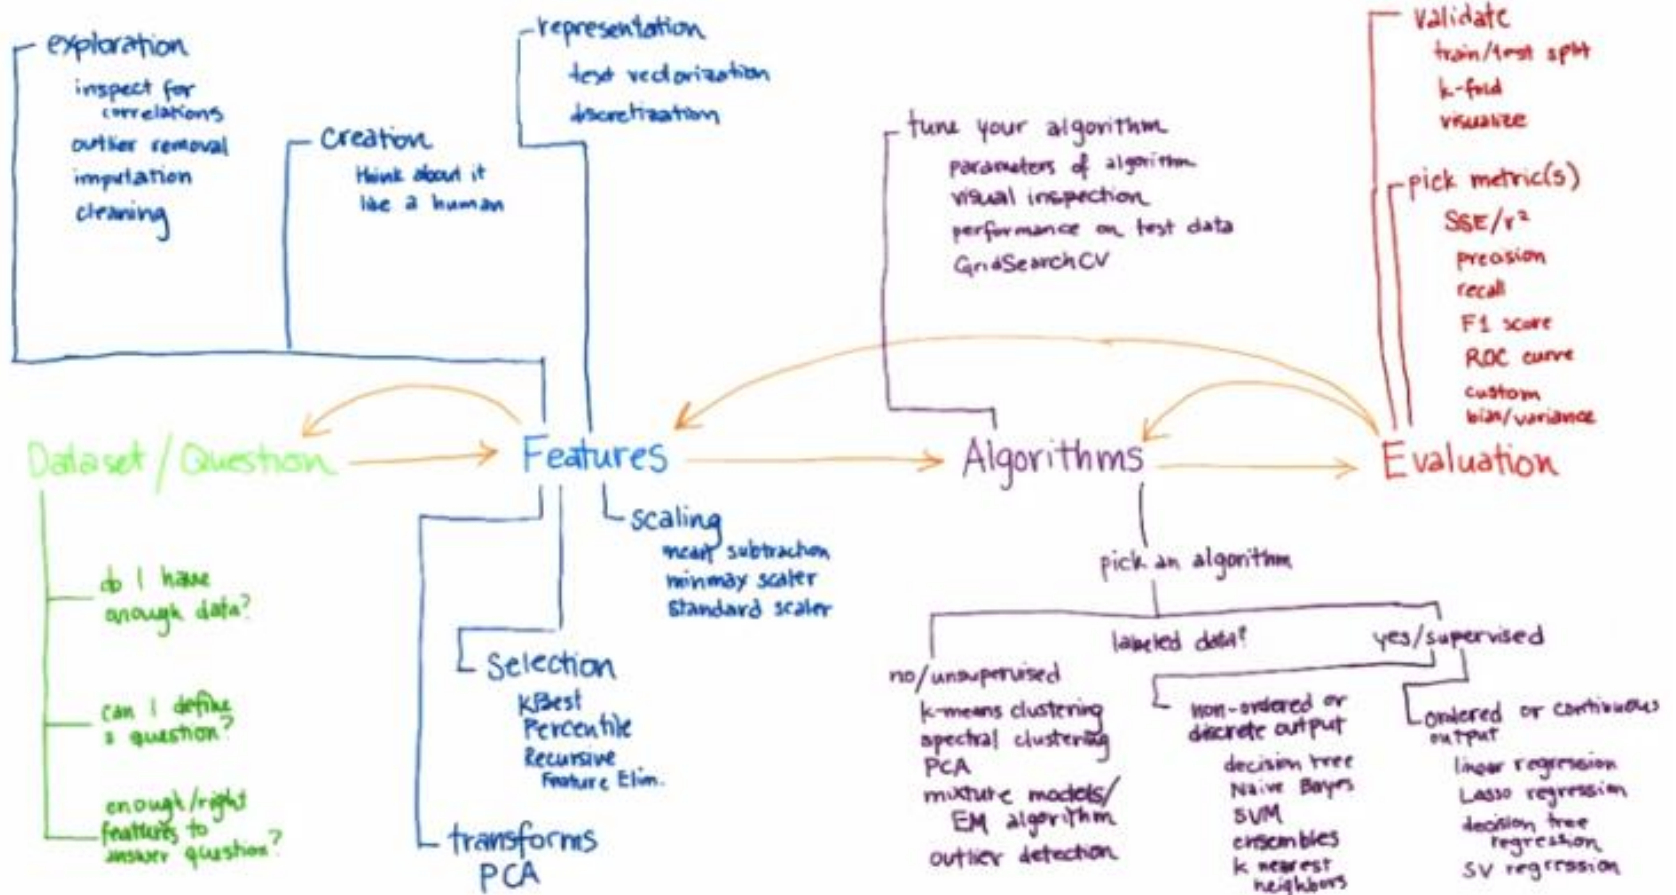 exploration
inspect for
correlations
outlier removal
imputation
cleaning
creation
think about it
like a human
representation
text vectorization
discretization
tune your algorithm
parameters of algorithm
visual inspection
performance on test data
GridSearchCV
validate
train/test split
k-fold
visualize
pick metric(s)
SSE/r²
precision
recall
F1 score
ROC curve
custom
bias/variance
Dataset/Question
Features
Algorithms
Evaluation
do I have
enough data?
can I define
a question?
enough/right
features to
answer question?
scaling
mean subtraction
minmax scaler
standard scaler
selection
KBest
Percentile
Recursive
Feature Elim.
transforms
PCA
pick an algorithm
labeled data?
no/unsupervised
k-means clustering
spectral clustering
PCA
mixture models/
EM algorithm
outlier detection
yes/supervised
non-ordered or
discrete output
decision tree
Naive Bayes
SVM
ensembles
k nearest
neighbors
ordered or continuous
output
linear regression
Lasso regression
decision tree
regression
SV regression